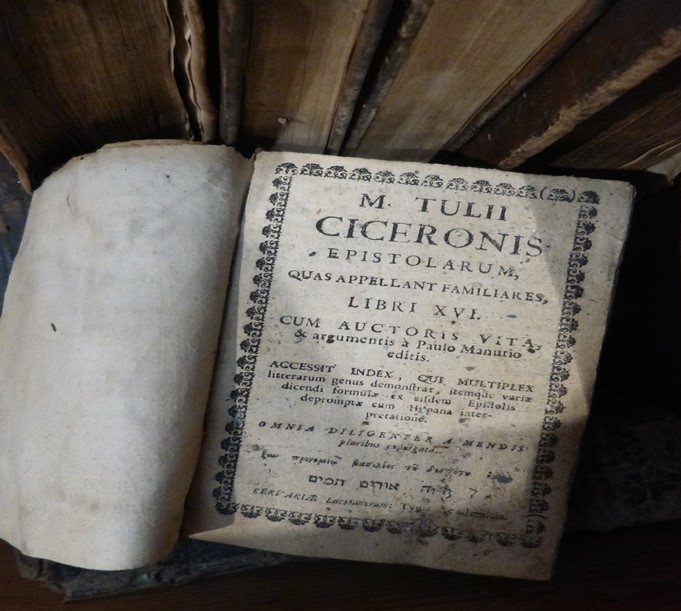 M. TULII
CICERONIS
EPISTOLARUM,
QUAS APPELLANT FAMILIARES,
LIBRI XVI.
CUM AUCTORIS VITA,
& argumentis à Paulo Manutio
editis.
ACCESSIT INDEX, QUI MULTIPLEX
litterarum genus demonstrat, itemque variæ
dicendi formulæ ex eisdem Epistolis
depromptæ cum Hispana inter-
pretatione.
OMNIA DILIGENTER A MENDIS
pluribus expurgata.
אורים תמים
CERVARIÆ Lacetanorum: Typis